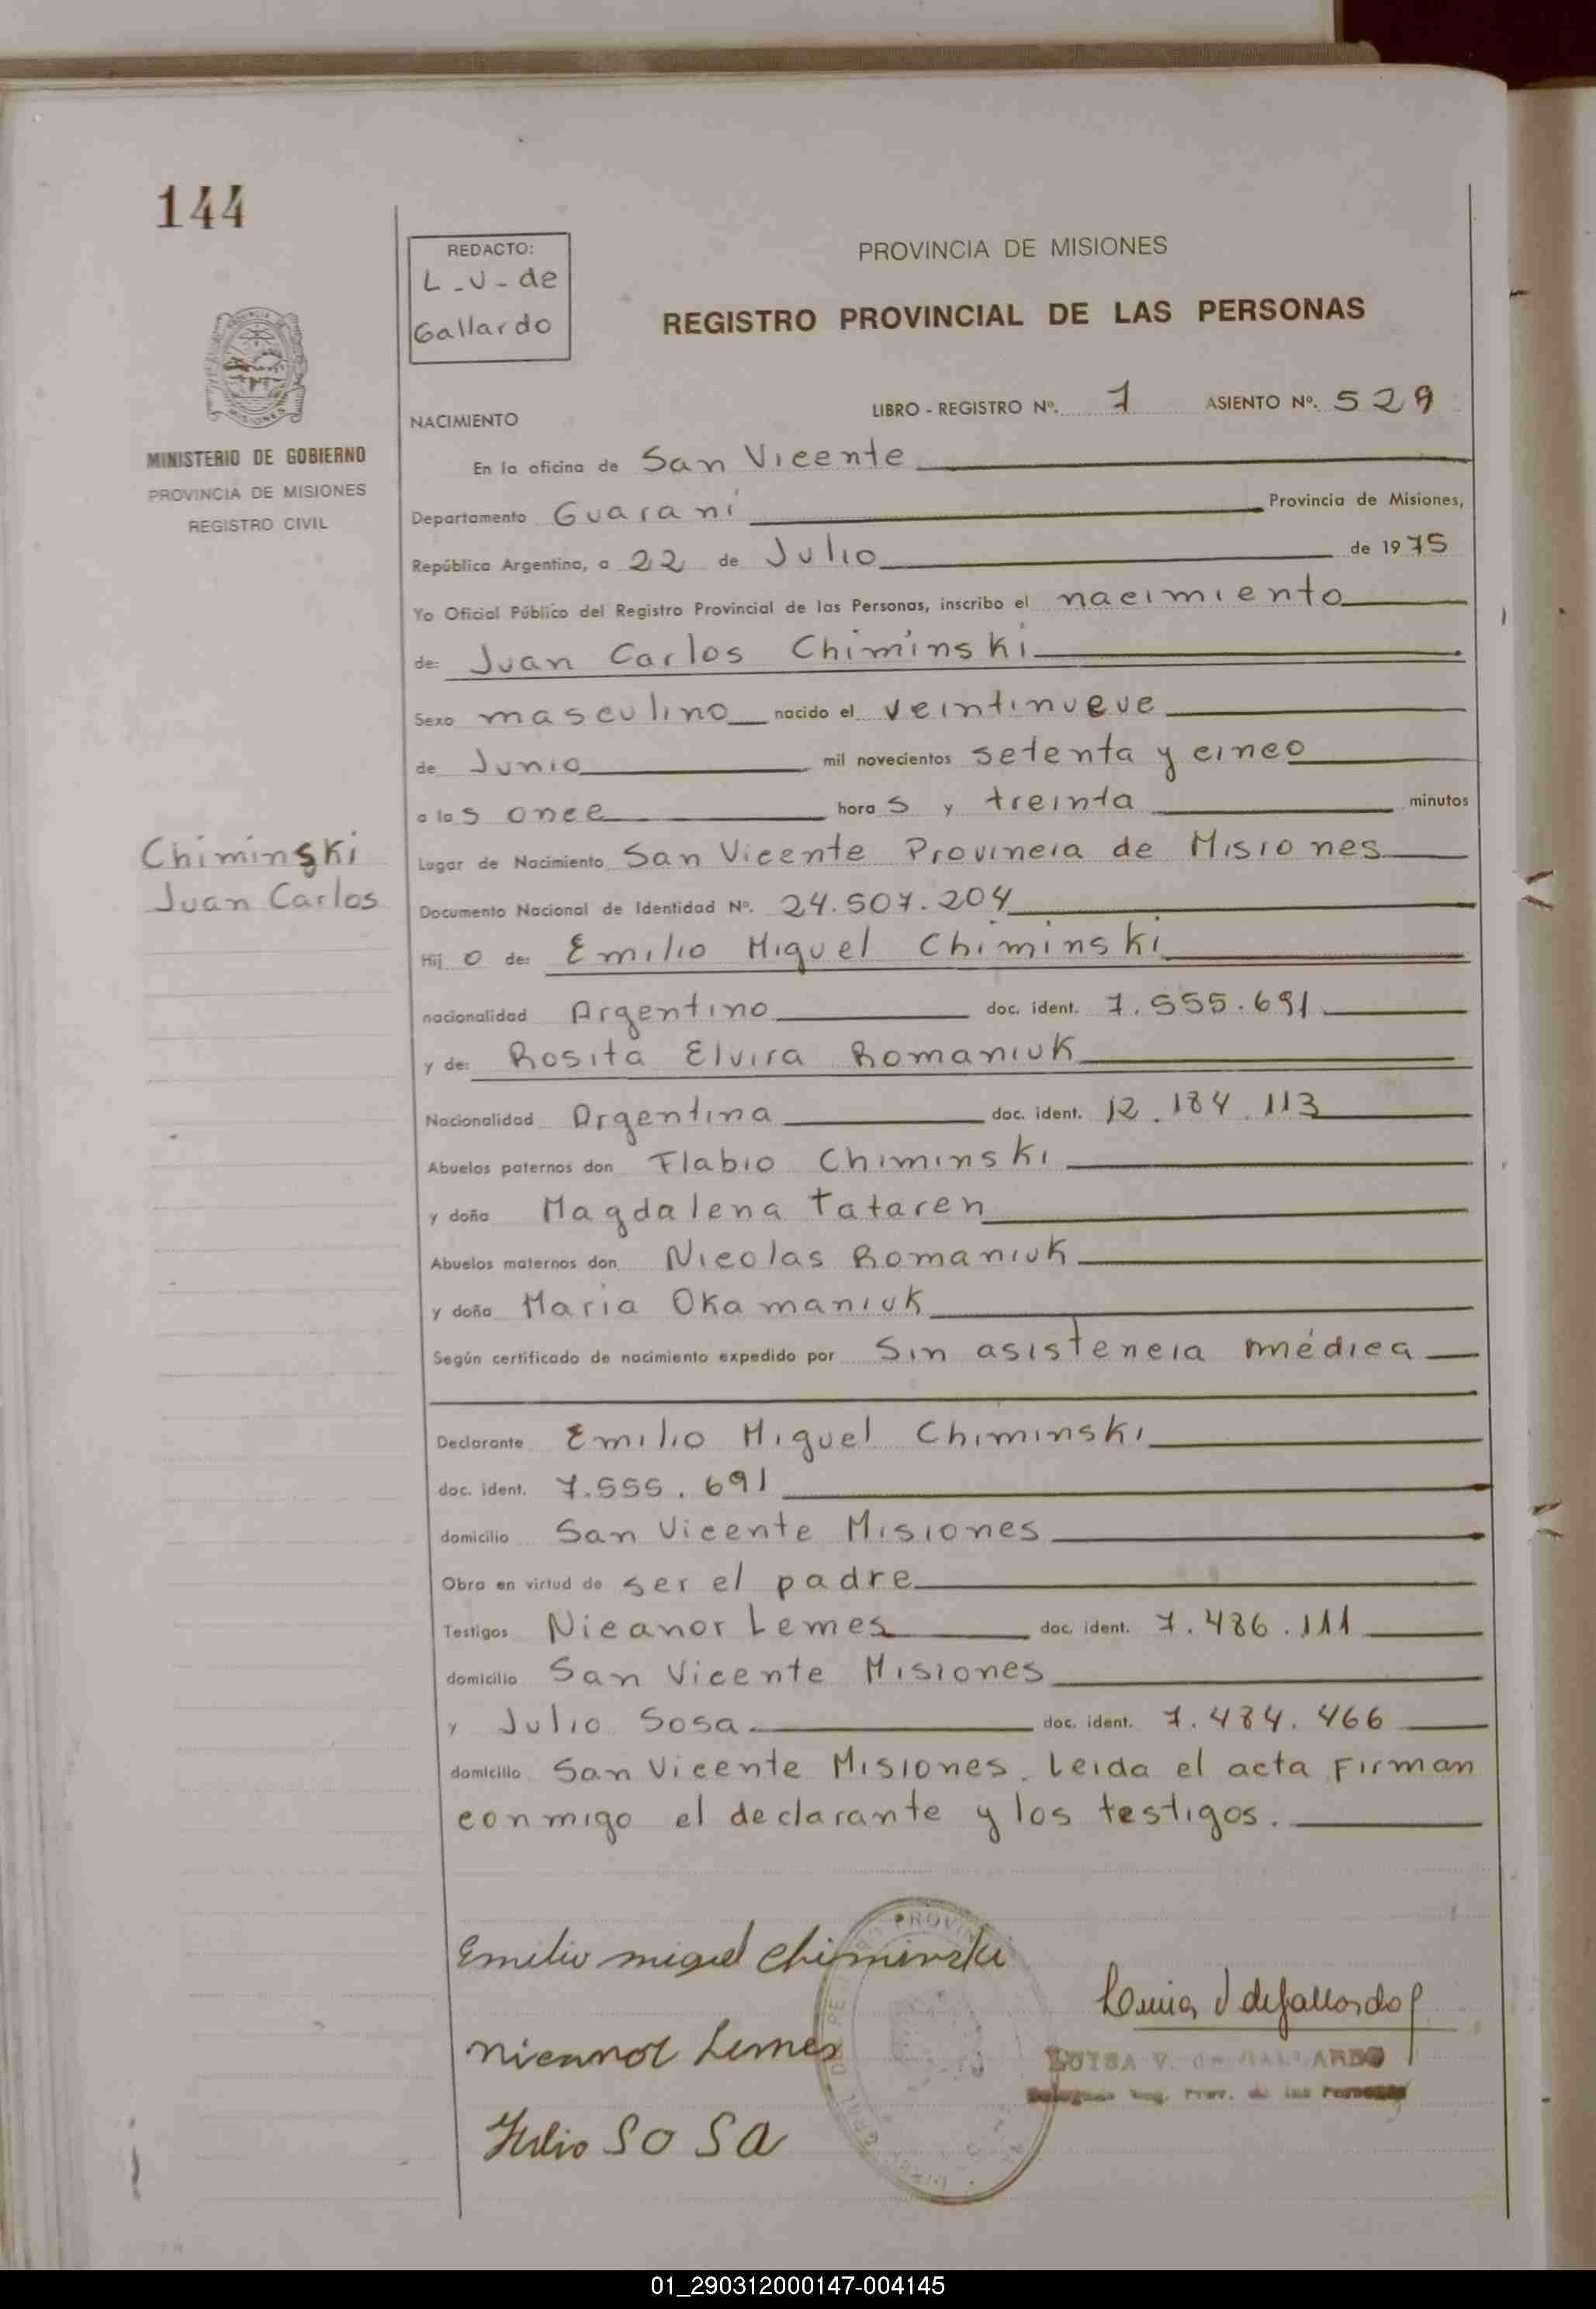 144
REDACTO:
L-V-de
Gallardo
PROVINCIA DE MISIONES
REGISTRO PROVINCIAL DE LAS PERSONAS
MINISTERIO DE GOBIERNO
PROVINCIA DE MISIONES
REGISTRO CIVIL
NACIMIENTO
LIBRO - REGISTRO Nº. 7 ASIENTO Nº. 529
En la oficina de San Vicente
Departamento Guaraní Provincia de Misiones,
República Argentina, a 22 de Julio de 1975
Yo Oficial Público del Registro Provincial de las Personas, inscribo el nacimiento
de: Juan Carlos Chiminski
Sexo masculino nacido el veintinueve
de Junio mil novecientos setenta y cinco
a las once horas y treinta minutos
Chiminski
Juan Carlos
Lugar de Nacimiento San Vicente Provincia de Misiones
Documento Nacional de Identidad Nº. 24.507.204
Hijo de: Emilio Miguel Chiminski
nacionalidad Argentino doc. ident. 7.555.691
y de: Rosita Elvira Romaniuk
Nacionalidad Argentina doc. ident. 12.184.113
Abuelos paternos don Flabio Chiminski
y doña Magdalena Tataren
Abuelos maternos don Nicolas Romaniuk
y doña Maria Okamaniuk
Según certificado de nacimiento expedido por Sin asistencia médica
Declarante Emilio Miguel Chiminski
doc. ident. 7.555.691
domicilio San Vicente Misiones
Obra en virtud de ser el padre
Testigos Nicanor Lemes doc. ident. 7.486.111
domicilio San Vicente Misiones
y Julio Sosa doc. ident. 7.484.466
domicilio San Vicente Misiones. Leida el acta Firman
conmigo el declarante y los testigos.
Emilio miguel Chiminski
Luisa V de Gallardo
nicanor Lemes
LUISA V. de GALLARDO
Reg. Prov. de las Personas
Julio SOSA
01_290312000147-004145